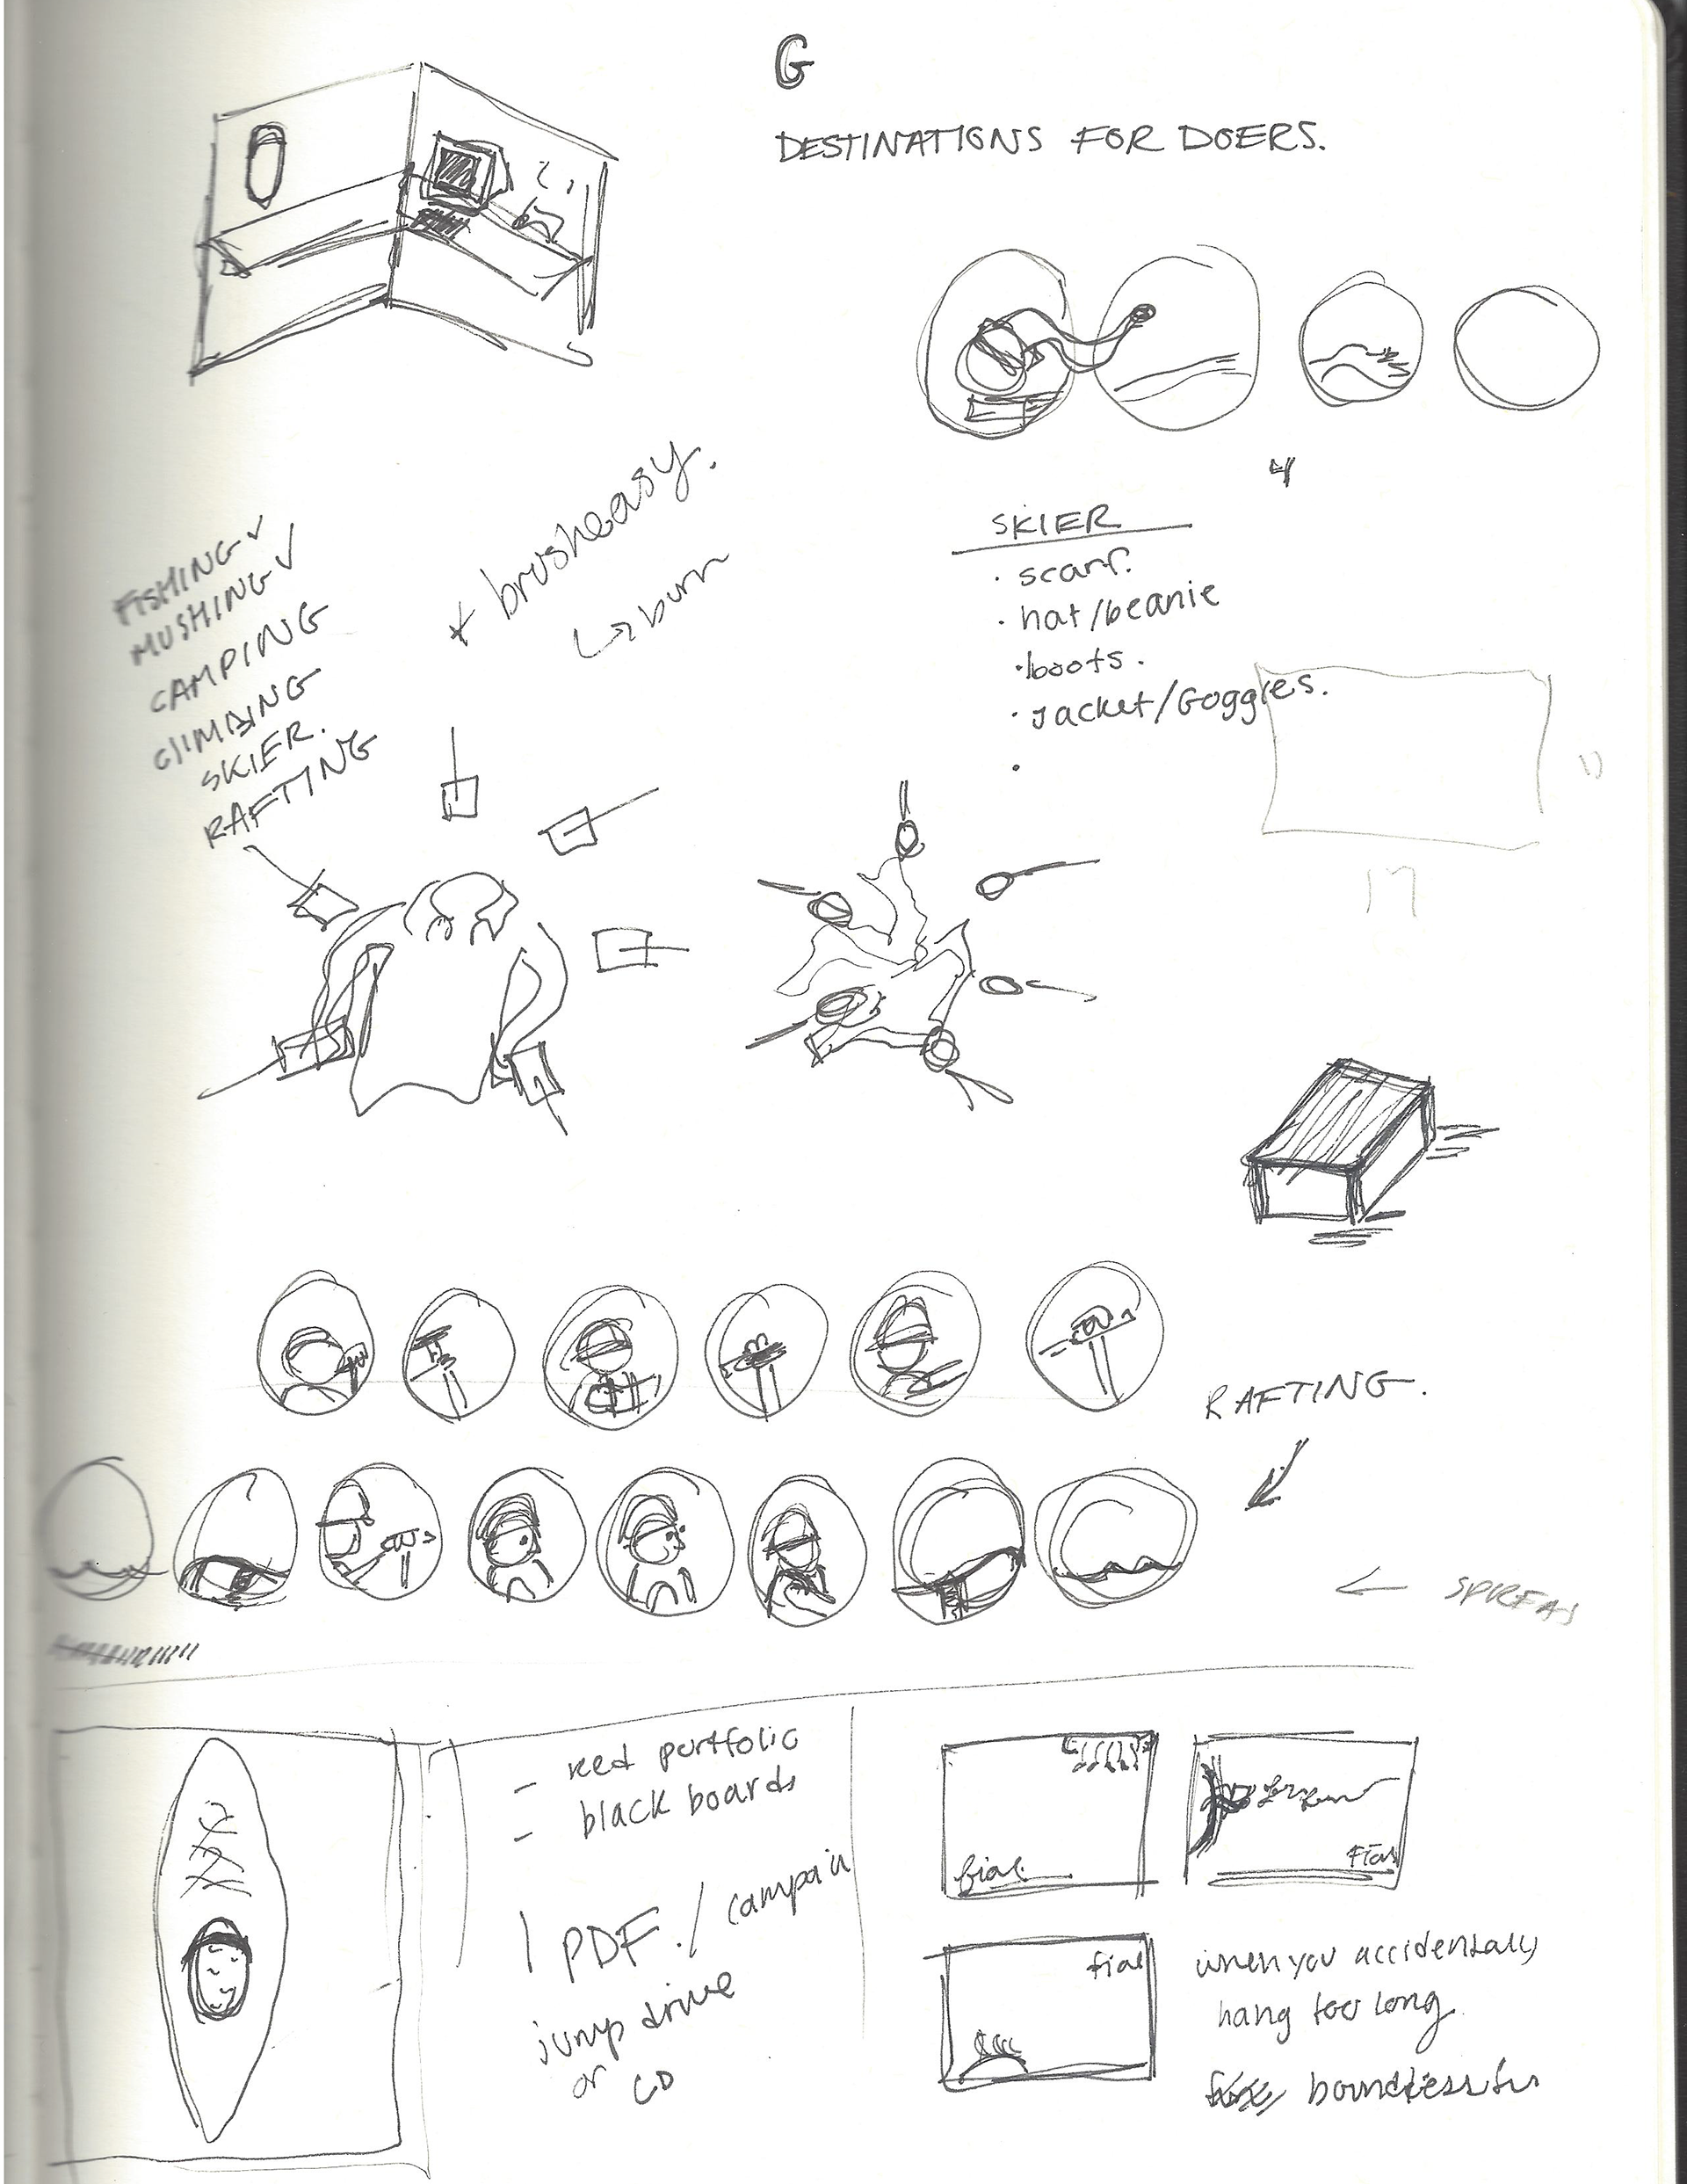 G
DESTINATIONS FOR DOERS.
4
FISHING ✓
MUSHING ✓
CAMPING
CLIMBING
SKIER.
RAFTING
* brusheasy.
↳ burn
SKIER
· scarf.
· hat/beanie
· boots.
· Jacket/Goggles.
·
11
17
RAFTING.
← SPREAD
- red portfolio
- black boards
1 PDF. / campain
jump drive
or CD
fial
fial
fial
when you accidentally
hang too long
boundless fun